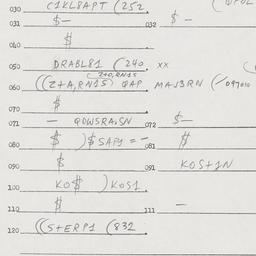 030 C1KL8APT (252
031 $- 032 $ -
040 $
050 DRABL81 (240. xx
060 ((Z+A,RN15) QAP MAJ3RN
070 $
071 - QOWSRA,SN 072 $-
080 $ )$ SAP1 = - 081 $
090 $ 091 KOS+1N
100 KO$ )KOS1
110 $ 111 -
120 ((S+ERP1 (832